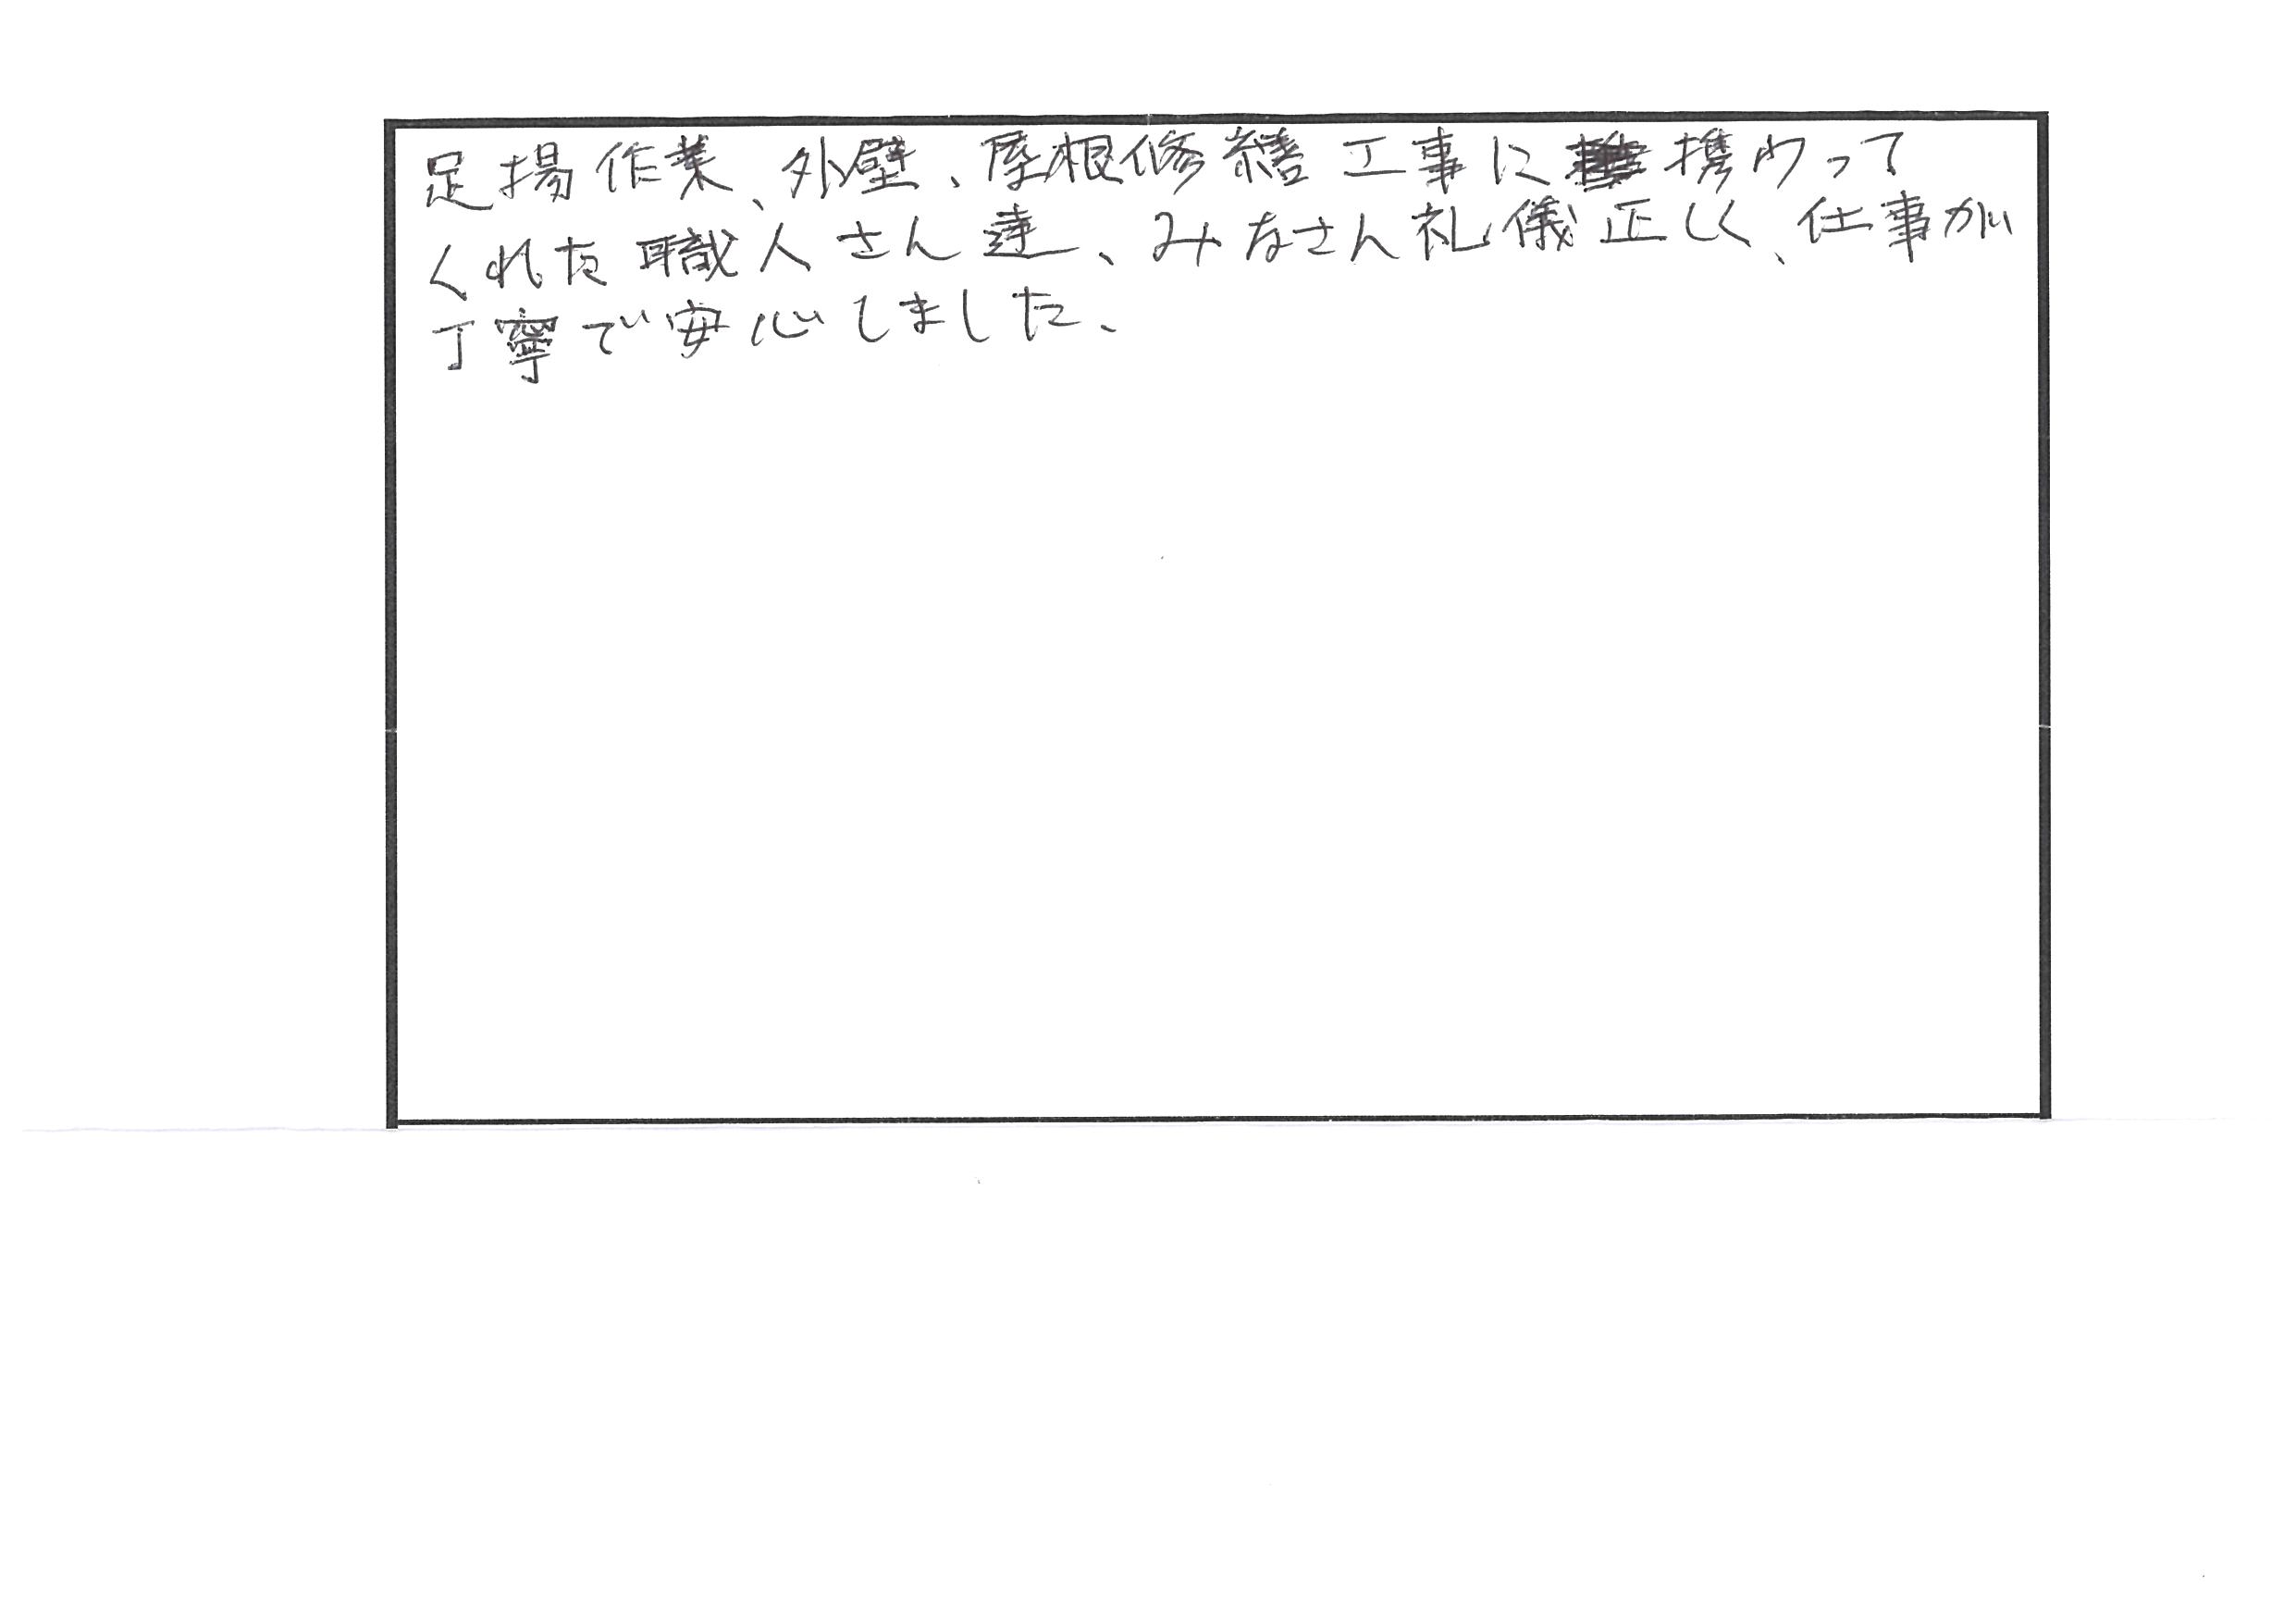 足場作業、外壁、屋根修繕工事に携わって
くれた職人さん達、みなさん礼儀正しく、仕事が
丁寧で安心しました、